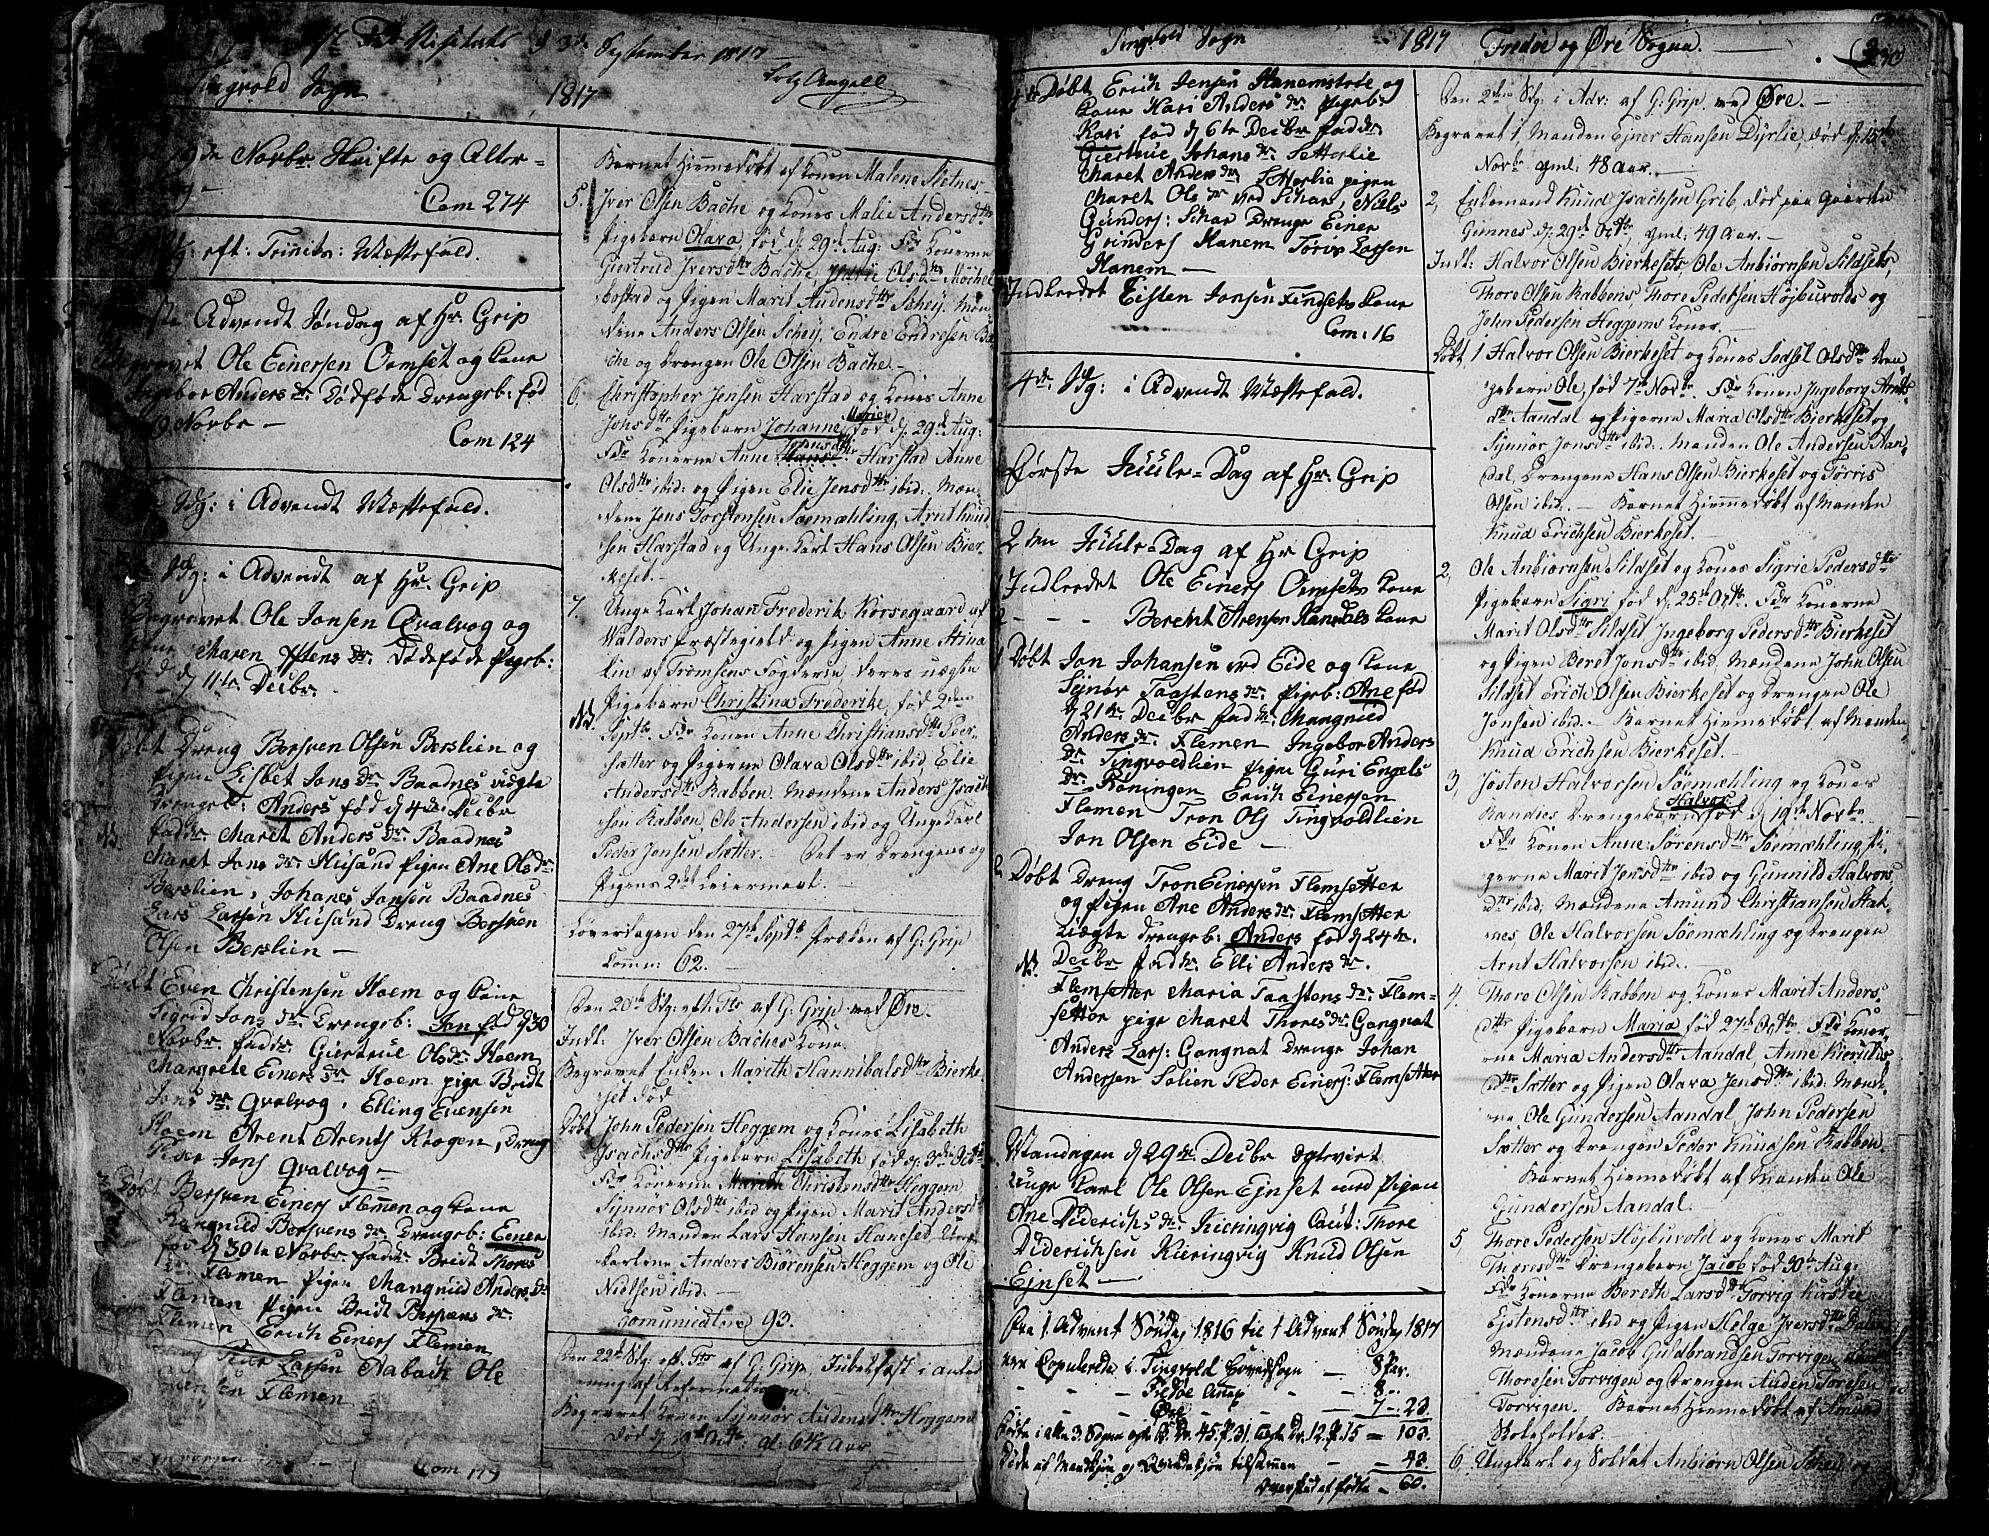 September 1817
Tingvold Sogn 1817
Novbr Skrifte og Alter=
Com 274
eft: Trinits: Messefald.
Advendt Søndag af Hr. Grip
Begravet Ole Einersen Oemset og Kone
Ingebor Anders dr: Dødføde Drengeb: fød
9 Novbr –
Com 124
Sdg: i Advendt Messefald.
Sdg: i Advendt af Hr. Grip
Begravet Ole Jonsen Qvalvog og
Kone Maren dr: Dødeføde Pigeb:
fød d 11te Decbr.
Døbt Dreng Bersven Olsen Berslien og
Pigen Lisbet Jons dr: Baadnes uægte
Drengeb: Anders fød d 4de Decbr
Faddr: Maret Anders dr: Baadnes
Maret Jons dr: Husand Pigen Ane Ols dr:
Berslien, Johanes Jonsen Baadnes
Lars Larsen Husand Dreng Bersven
Olsen Berslien –
Døbt Even Christensen Hoem og Kone
Sigrid Jons dr: Drengeb: Jon fød d 30
Novbr. Faddr: Giertrue Olsdr Hoem
Margrete Einers dr: Hoem pige Bridt
Jons dr: Qvalvog, Elling Evensen
Hoem Arent Arents Krogen, Dreng
Peder Jons Qvalvog –
3 Døbt Bersven Einers Flemen og Kone
Ragnild Bersvens dr: Drengeb: Einer
fød d 30te Novbr Faddr: Bridt Thores
dr: Flemen Pigen Mangnild Anders dr
Flemen Pigen Bridt Bersvens dr:
Flemen Erich Einers Flemen
Peder Larsen Aabach Ole
Flemen
Com 179
Barnet hiemmedøbt af Konen Malene Sletnes –
5. Iver Olsen Bache og Kones Malie Andersdttr
Pigebarn Olava, fød d: 29d Aug: Fdr Konerne
Giertrud Iversdttr Bache, Marie Olsdttr Møchel
bostad og Pigen Marit Audensdttr Schey. Mæn
dene Anders Olsen Schey, Endre Endresen Ba
che og Drengen Ole Olsen Bache. –
6, Christopher Jensen Harstad og Kones Anne
Jonsdttr Pigebarn Johanne Marie fød d: 29d Aug:
Fdr Konerne Anne Johnsdttr Harstad Anne
Olsdttr ibid: og Pigen Elie Jensdttr ibid: Mæn
dene Jens Torstensen Søemæhling, Arnt Knud
sen Harstad og Unge Karl Hans Olsen Bier
keset. –
7. Unge Karl Johan Frederik Korsegaard af
Walders Præstegield og Pigen Anne Stina
lin af Tromsens Fogderie, deres uægte
Pigebarn Christina Frederike, fød 2den
Septb. Fdr Konen Anne Christiansdttr
sætter og Pigerne Olava Olsdttr ibid Elie
Andersdttr Rabben. Mændene Anders Isach
sen Rabben, Ole Andersen ibid og Unge Karl
Peder Jonsen Sætter. Det er Drengens og
Pigens 2det Leiermaal. –
Løverdagen den 27de Septb Præken af G: Grip
Comm: 62. –
Den 20de Sdg: eft: Tr af G: Grip ved Øre.
Indl: Iver Olsen Baches Kone
Begravet Enken Marith Hannibalsdttr Bierke
set død
Døbt John Pedersen Heggem og Kones Lisabeth
Isachsdttr Pigebarn Lisabeth fød d: 3die Octb.
Fdr Konerne Marith Christensdttr Heggem
Synnør Olsdttr ibid og Pigen Marit Andersd
ibid. Manden Lars Hansen Hanesed. Unge
karlene Anders Biørensen Heggem og Ole
Nielsen ibid. –
Comunicatere 93.
Den 22de Sdg. eft. Tr af G: Grip, Jubelfest i anled
ning af Reformationen
Begravet Konen Synnør Audensdttr Heggem
Tingvold Sogn 1817 Fredøe og Øre Sogne. – 240
4de Døbt Erich Jensen Hanemstrøe og
Kone Kari Anders dr: Pigeb:
Kari fød d 6te Decbr Faddr
Giertrue Johans dr: Setterlie
Maret Anders dr: Setterlie pigen
Maret Ols dr ved Schar, Niels
Gunders: Schar Drenge Einer
Gunders Hanem Torris Larsen
Hanem –
Indleedet Eisten Jonsen Findsets Kone
Com: 16
4de Sdg: i Advendt Messefald.
Første Juule=Dag af Hr: Grip
2den Juule=Dag af Hr Grip
1 Indleedet Ole Einers Oemsets Kone
2 – – – Bereht Arensen Kanedals Kone
1 Døbt Jon Johansen ved Eide og Kone
Synør Taastens dr: Pigeb: Ane fød
d 21de Decbr Faddr Mangnild
Anders dr: Flemen Ingebor Anders
dr: Tingvoldlien Pige Guri Engels
dr: Røningen Erich Einersen
Flemen Tron Ols Tingvoldlien
Jon Olsen Eide –
2 Døbt Dreng Tron Einersen Flemsetter
og Pigen Ane Anders dr: Flemsetter
Uægte Drengeb: Anders fød d 24de
Decbr Faddr. Elli Anders dr.
Flemsetter Maria Taastens dr: Flem=
setter pige Maret Thores dr: Gangnat
Anders Lars: Gangnat Drenge Johan
Andersen Solien Peder Einers: Flemsetter
Mandagen d 29de Decbr Egtevirt
Unge Karl Ole Olsen Ejnset med Pigen
Ane Diderichs dr: Kieringvig Caut: Thore
Diderichsen Kieringvig Knud Olsen
Ejnset –
Fra 1 Advent Søndag 1816 til 1 Advent Søndag 1817
ere Copulerede i Tingvold Hovedsogn – 8 Par.
– – Fredøe Annex – 8 –
– – Øre – – 7 – 23
Fødte i alle 3 Sogne – 103.
Døde af Mandkjøn og Qvindekjøn tilsammen – – 43
Overskud af fødte – 60.
Den 2den Sdg. i Adv: af G: Grip ved Øre. –
Begravet 1, Manden Ejner Hansen Dyrlie, død d: 15de
Novbr gml: 48 Aar. –
2, Enkemand Knud Isachsen Grib død paa Gaarden
Gimnes d: 29de Octb, gml: 49 Aar. –
Indl: Halvor Olsen Bierkesets Ole Anbiørnsen Sildsets,
Thore Olsen Rabbens Thore Pedersen Højbuvolds og
John Pedersen Heggems Koner. –
Døbt 1 Halvor Olsen Bierkeset og Kones Sedsel Olsdttr Dren
gebarn Ole, fød 7de Novbr. Fdr Konen Ingeborg Arnts
dttr Aandal og Pigerne Maria Olsdttr Bierkeset og
Synnør Jonsdttr ibid. Manden Ole Andersen Aan
dal, Drengene Hans Olsen Bierkeset og Torris
Olsen ibid. – Barnet hiemmedøbt af Manden
Knud Erichsen Bierkeset. –
2, Ole Anbiørnsen Sildset og Kones Sigrie Pedersdttr
Pigebarn Sigri fød d: 25de Octb. Fdr Konerne
Marit Olsdttr Sildset, Ingeborg Pedersdttr Bierkeset
og Pigen Beret Jonsdttr ibid. Mændene John Olsen
Sildset Erich Olsen Bierkeset og Drengen Ole
Jonsen ibid. – Barnet hiemmedøbt af Manden
Knud Erichsen Bierkeset. –
3, Josten Halvorsen Søemæhling og Kones
Randies Drengebarn Halvor fød d 19de Novbr
Fdr Konen Anne Sørensdttr Søemæhling, Pi
gerne Marit Jensdttr ibid og Gunnild Halvors
dttr ibid, Mændene Amund Christiansen Slet
nes, Ole Halvorsen Søemæhling og Drengen
Arnt Halvorsen ibid. –
4. Thore Olsen Rabben og Kones Marit Anders
dttr Pigebarn Maria fød 27de Octbr. Fdr Koner
ne Maria Andersdttr Aandal, Anne Kieruls
dttr Sætter og Pigen Olava Jensdttr ibid. Mænde
ne Ole Gundersen Aandal John Pedersen
Sætter og Drengen Peder Knudsen Rabben.
Barnet hiemmedøbt af Manden Ole
Gundersen Aandal.
5, Thore Pedersen Højbuvold og Kones Marit
Thoresdttr Drengebarn Jacob fød 30te Aug:
Fdr Konerne Bereth Larsdttr Torvig Kirstie
Eystensdttr ibid og Pigen Helge Iversdttr
Mændene Jacob Guldbrandsen Torvigen
Thoresen Torvigen og Drengen Auden Toresen
Torvigen. Barnet hiemmedøbt af Amund
Skoleholder.
6. Ungkarl og Soldat Anbiørn Olsen Schey